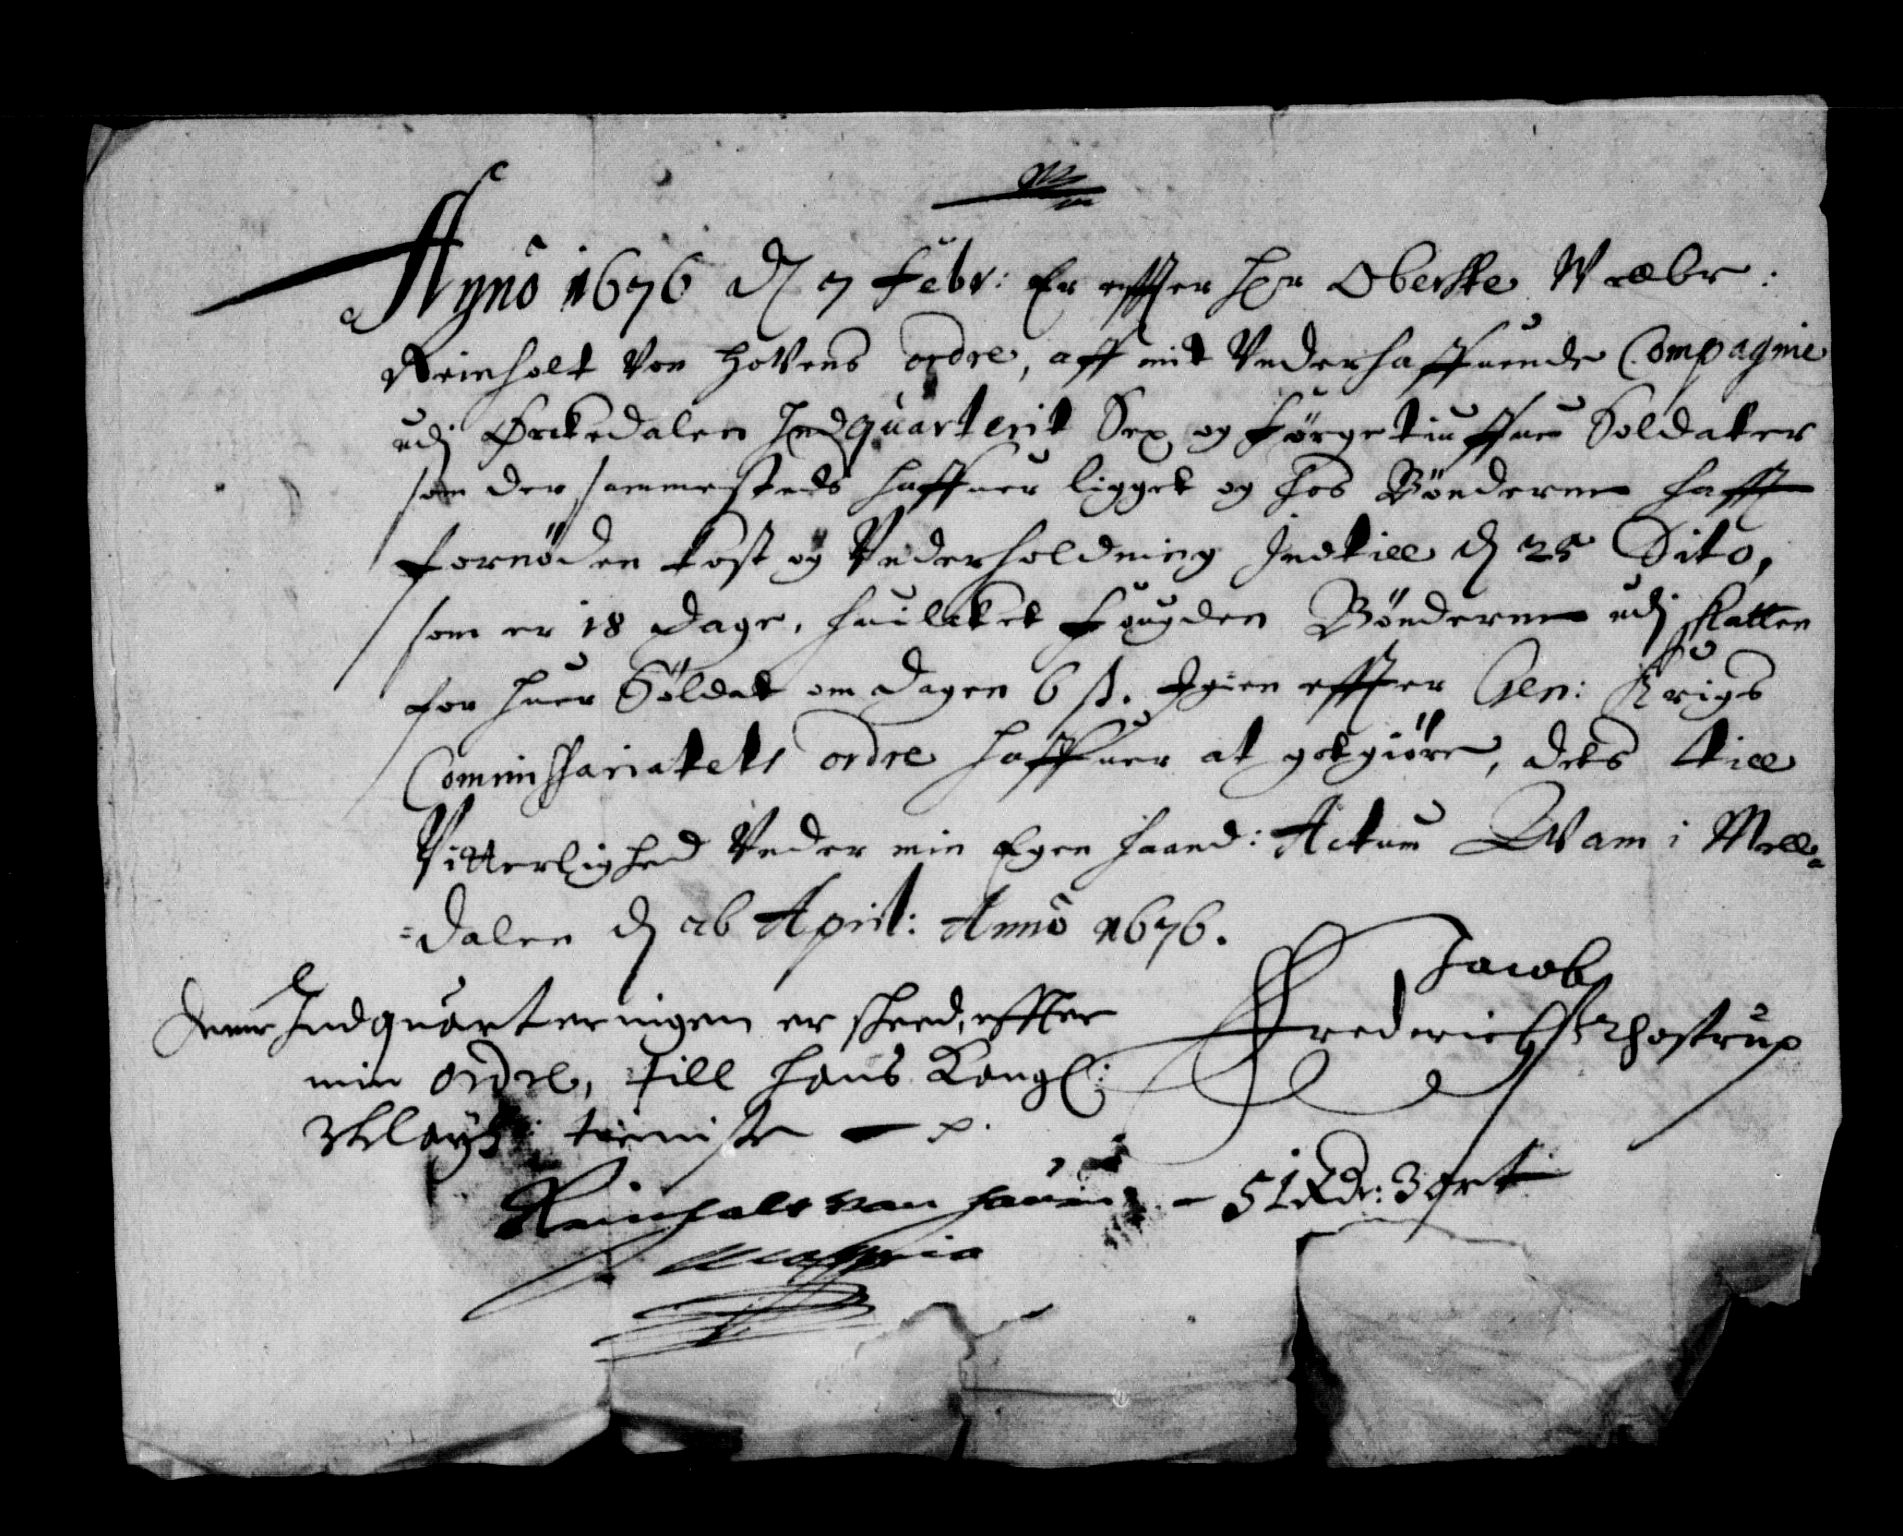 Anno 1676 d 7 Febr: Er effter Her Oberste Welbr:
Reinholt Von Hovens ordre, aff mit Vnderhaffuende Compagnie
udj Ørckedalen Indquarterit Sex og Førgetiuffue Soldater
som der sammesteds haffuer ligget og hos Bønderne hafft
fornøden kost og Vnderholdning Indtill d 25 Dito,
som er 18 Dage, huilcket Fougden Bønderne udj skatten
for huer Soldat om dagen 6 ß. Igien effter Gen: Krigs
Commissariatets ordre haffuer at gotgiøre, dets till
Vitterlighed Vnder min Egen haand: Actum Qvam i Mell=
=dalen d 26 April: Anno 1676.
Jacob
Frederichs Rhostrup
denne Indquarteringen er skeed, effter
min ordre, till hans Kongl:
Maytz: tienniste
Reinholt van Hauen
- 51 Rdr: 3 ort